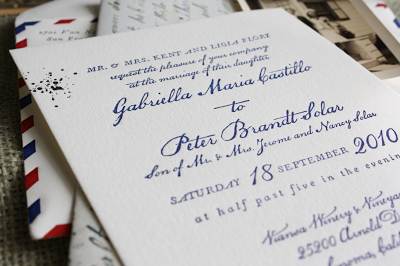 MR. & MRS. KENT AND LIGIA FLORY
request the pleasure of your company
at the marriage of their daughter
Gabriella Maria Castillo
to
Peter Brandt Solar
Son of Mr. & Mrs. Jerome and Nancy Solar
SATURDAY 18 SEPTEMBER 2010
at half past five in the evening
Viansa Winery & Vineyar
25200 Arnold D
Sonoma, Califo